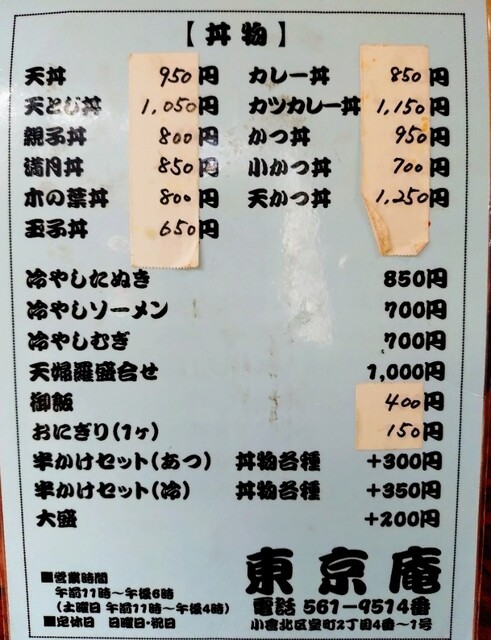 【丼物】
天丼 950円
天とじ丼 1,050円
親子丼 800円
満月丼 850円
木の葉丼 800円
玉子丼 650円
カレー丼 850円
カツカレー丼 1,150円
かつ丼 950円
小かつ丼 700円
天かつ丼 1,250円
冷やしたぬき 850円
冷やしソーメン 700円
冷やしむぎ 700円
天婦羅盛合せ 1,000円
御飯 400円
おにぎり(1ヶ) 150円
半かけセット(あつ) 丼物各種 +300円
半かけセット(冷) 丼物各種 +350円
大盛 +200円
■営業時間
午前11時〜午後6時
(土曜日 午前11時〜午後4時)
■定休日 日曜日・祝日
東京庵
電話 561-9514番
小倉北区室町2丁目4番〜1号